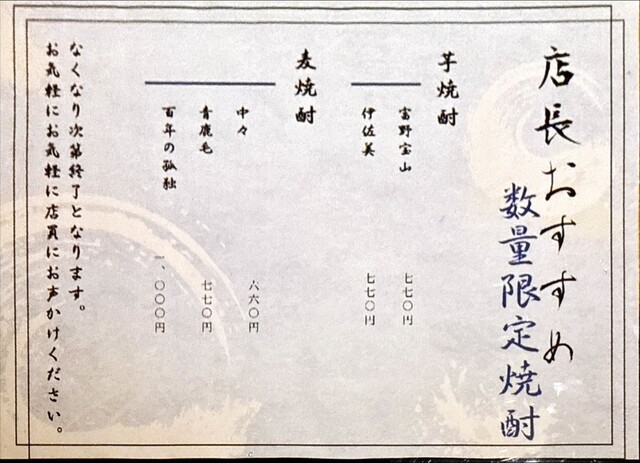 店長おすすめ
数量限定焼酎
芋焼酎
富野宝山 七七〇円
伊佐美 七七〇円
麦焼酎
中々 六六〇円
青鹿毛 七七〇円
百年の孤独 一、〇〇〇円
なくなり次第終了となります。
お気軽にお気軽に店員にお声かけください。